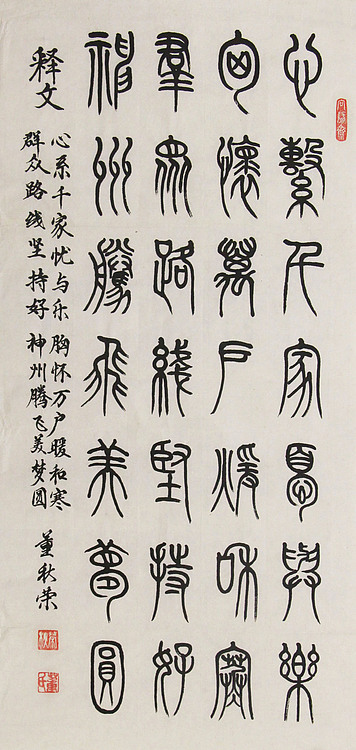 心繫千家㥑與樂
匈懷萬戶煖咊寒
羣眾路綫堅持好
神州騰飛美夢圓
释文
心系千家忧与乐 胸怀万户暖和寒
群众路线坚持好 神州腾飞美梦圆
董秋荣